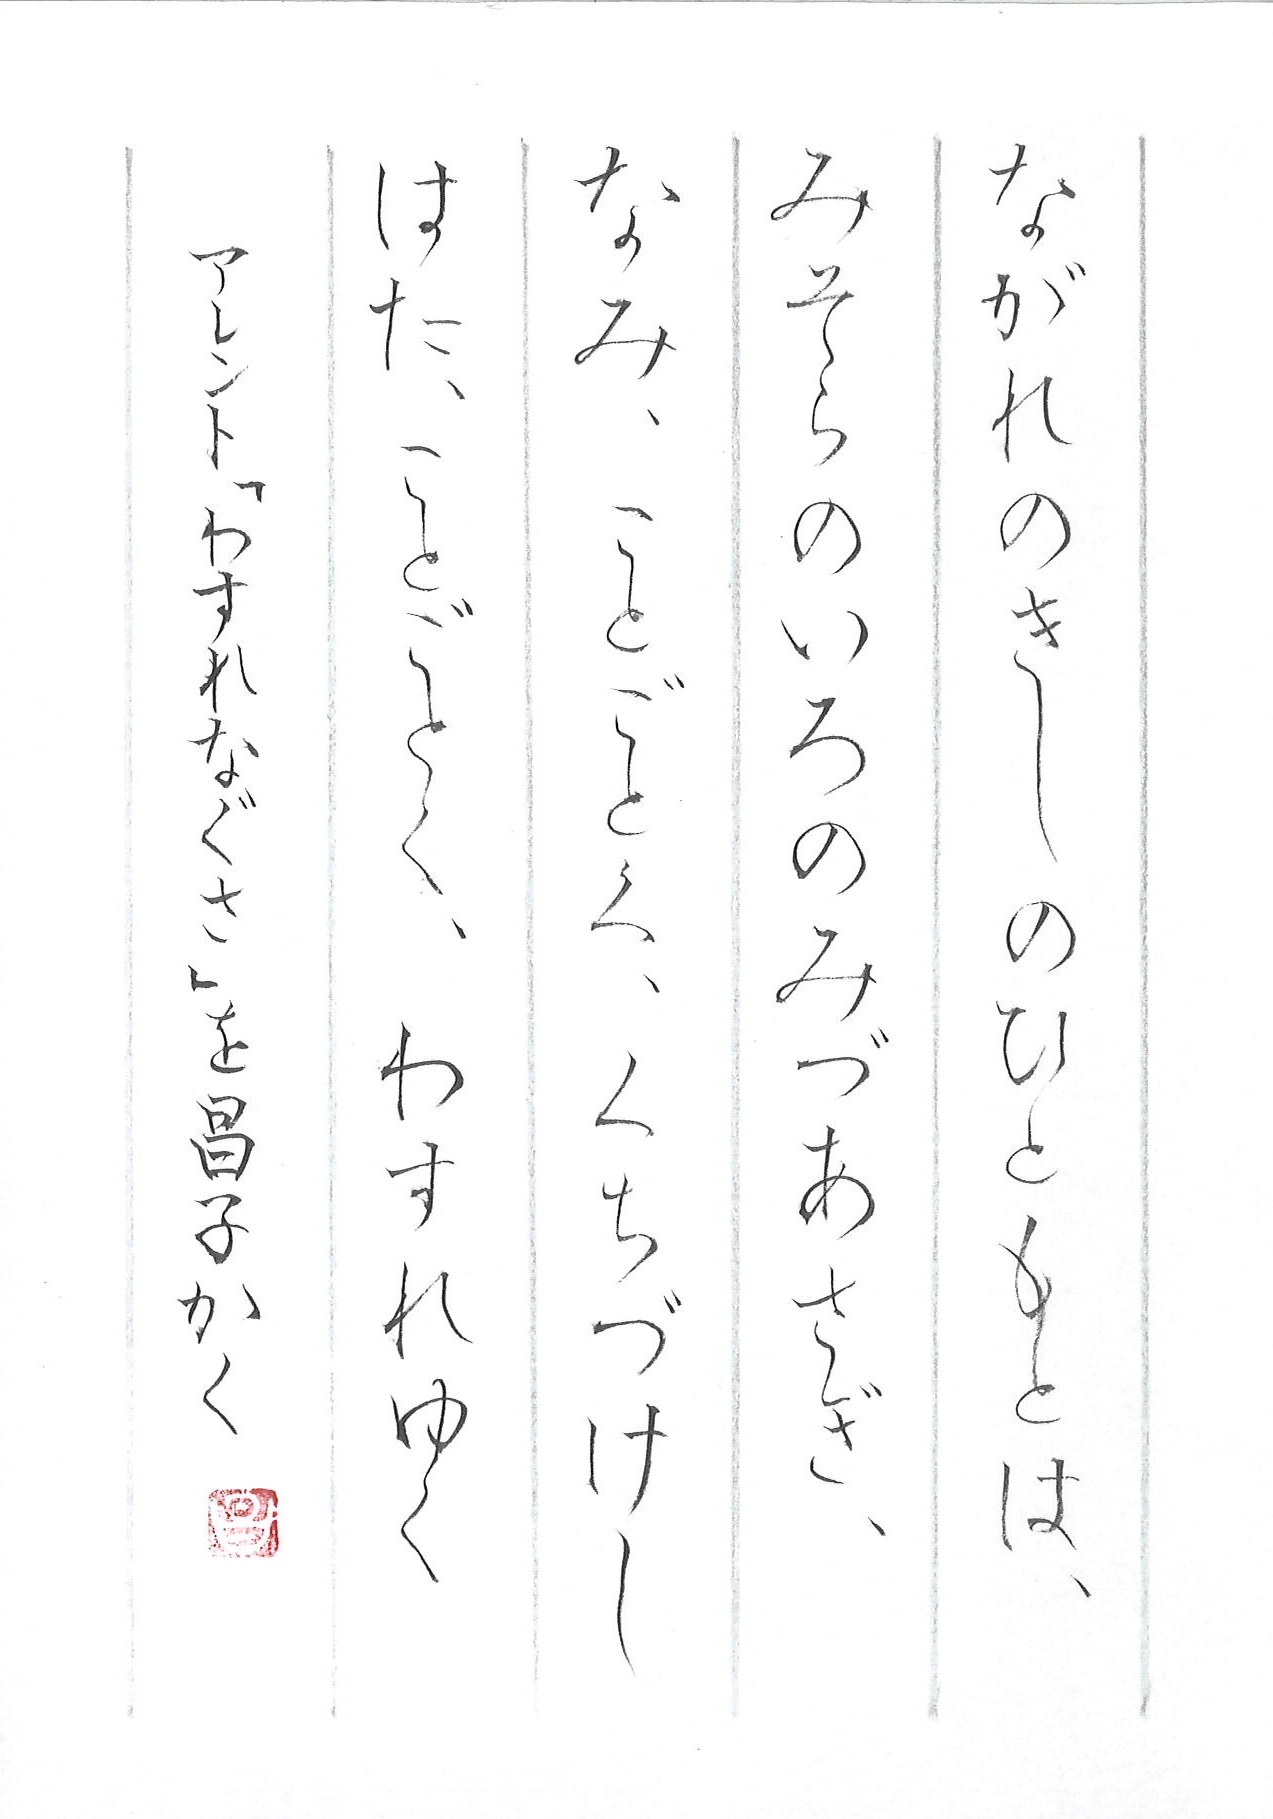 ながれのきしのひともとは、
みそらのいろのみづあさぎ、
なみ、ことごとく、くちづけし
はた、ことごとく、わすれゆく
アレント「わすれなぐさ」を昌子かく
昌